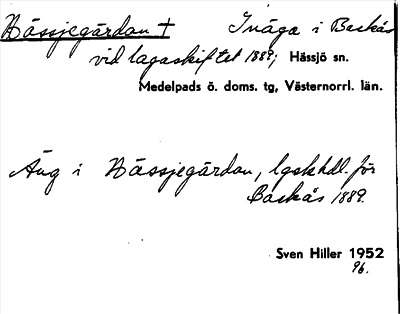 Bässjegärdan † Inäga i Backås
vid lagaskiftet 1889; Hässjö sn.
Medelpads ö. doms. tg, Västernorrl. län.
Äng i Bässjegärdan, lgskhdl. för
Backås 1889.
Sven Hiller 1952
96.